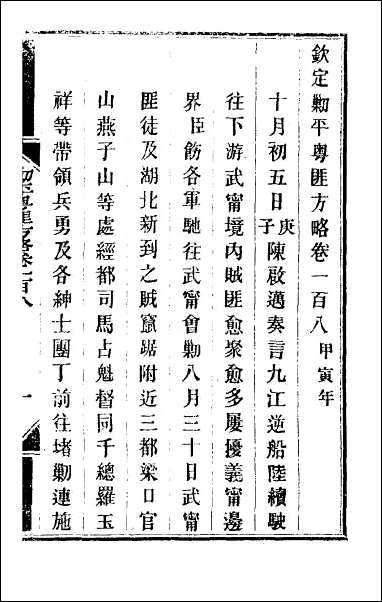 欽定勦平粵匪方略卷一百八 甲寅年
十月初五日庚子陳啟邁奏言九江逆船陸續駛
往下游武甯境內賊匪愈聚愈多屢擾義甯邊
界臣飭各軍馳往武甯會勦八月三十日武甯
匪徒及湖北新到之賊竄踞附近三都梁口官
山燕子山等處經都司馬占魁督同千總羅玉
祥等帶領兵勇及各紳士團丁前往堵勦連施
勦平粵匪方略卷一百八
一